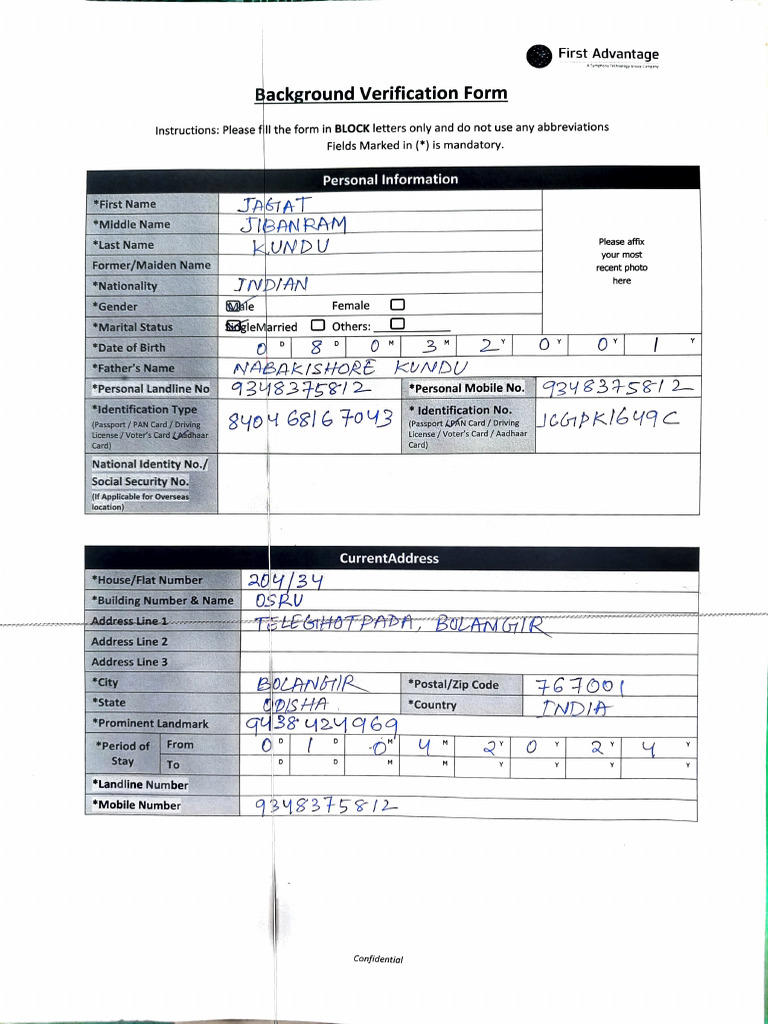 First Advantage
A Symphony Technology Group Company
Background Verification Form
Instructions: Please fill the form in BLOCK letters only and do not use any abbreviations
Fields Marked in (*) is mandatory.
Personal Information
*First Name JAGAT
*Middle Name JIBANRAM
*Last Name KUNDU
Please affix
your most
recent photo
here
Former/Maiden Name
*Nationality INDIAN
*Gender Male Female
*Marital Status Single Married Others:
*Date of Birth 0 D 8 D 0 M 3 M 2 Y 0 Y 0 Y 1 Y
*Father's Name NABAKISHORE KUNDU
*Personal Landline No 9348375812 *Personal Mobile No. 9348375812
*Identification Type
(Passport / PAN Card / Driving
License / Voter's Card / Aadhaar
Card)
8404 6816 7043
* Identification No.
(Passport / PAN Card / Driving
License / Voter's Card / Aadhaar
Card)
JGGPK1649C
National Identity No./
Social Security No.
(If Applicable for Overseas
location)
CurrentAddress
*House/Flat Number 204/34
*Building Number & Name OSRU
Address Line 1 TELEGHOTPADA, BOLANGIR
Address Line 2
Address Line 3
*City BOLANGIR *Postal/Zip Code 767001
*State ODISHA *Country INDIA
*Prominent Landmark 9438424969
*Period of Stay From 0 D 1 D 0 M 4 M 2 Y 0 Y 2 Y 4 Y
To D D M M Y Y Y Y
*Landline Number
*Mobile Number 9348375812
Confidential